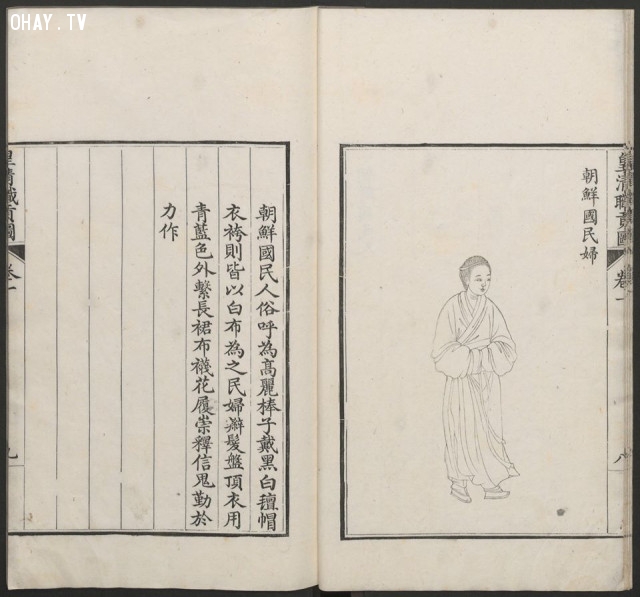 OHAY.TV
皇清職貢圖
卷一
八
朝鮮國民婦
朝鮮國民人俗呼為高麗棒子戴黑白氊帽
衣袴則皆以白布為之民婦辮髮盤頂衣用
青藍色外繫長裙布襪花履崇釋信鬼勤於
力作
皇清職貢圖
卷一
九